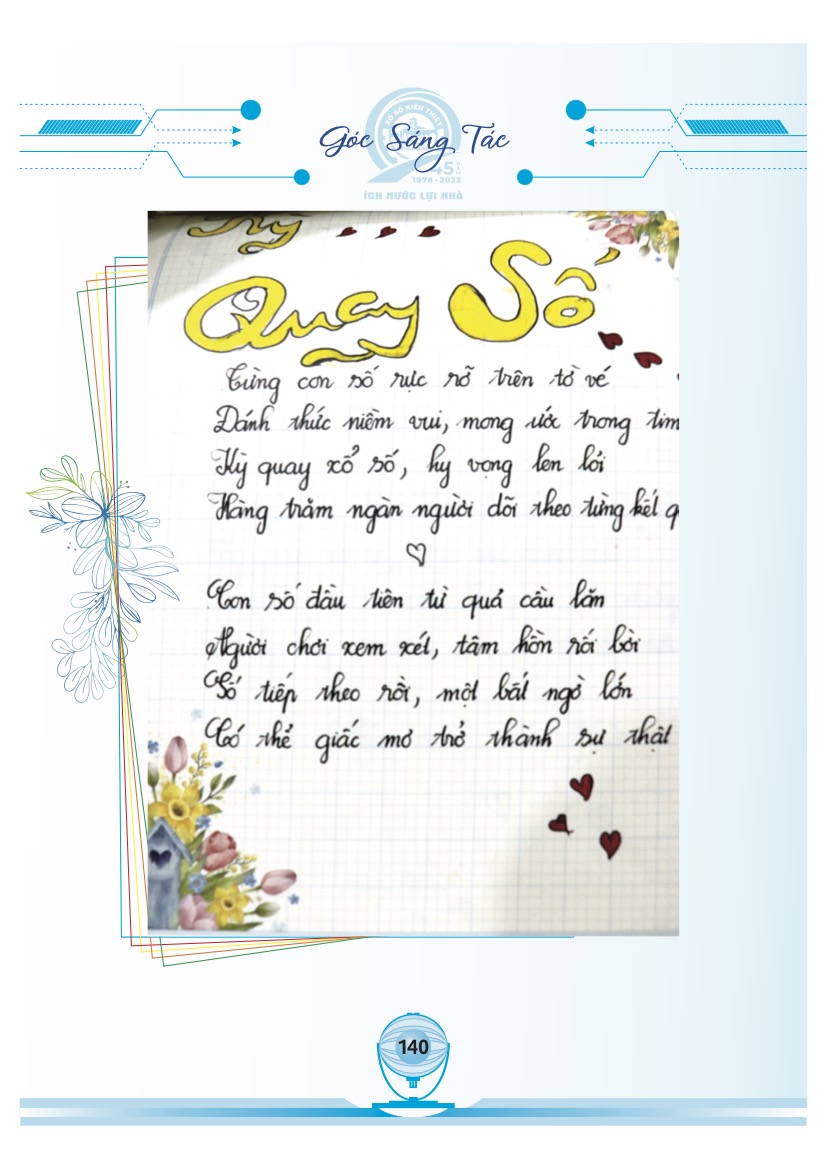 XỔ SỐ KIẾN THIẾT
Góc Sáng Tác
45
1978 - 2023
ÍCH NƯỚC LỢI NHÀ
Kỳ
Quay Số
Từng con số rực rỡ trên tờ vé
Đánh thức niềm vui, mong ước trong tim
Kỳ quay xổ số, hy vọng len lỏi
Hàng trăm ngàn người dõi theo từng kết q
Con số đầu tiên từ quả cầu lăn
Người chơi xem xét, tâm hồn rối bời
Số tiếp theo rồi, một bất ngờ lớn
Có thể giấc mơ trở thành sự thật
140